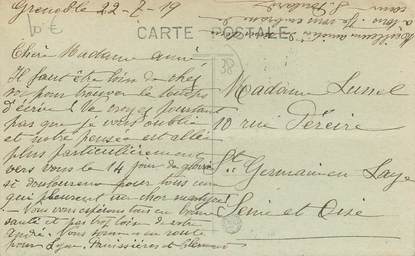 Grenoble 22-7-19
10 €
CARTE POSTALE
38
Chère Madame amie
Il faut être loin de chez
soi pour trouver le temps
d'écrire! Ne croyez pourtant
pas que je vous oublie
et notre pensée est allée
plus particulièrement
vers vous le 14 jour de gloire
si douloureux pour tous ceux
qui pleurent un cher martyr!
Nous vous espérons tous en bonne
santé et pas trop loin de votre
André. Nous sommes en route
pour Lyon
Madame Lussel
10 rue Péreire
St Germain en Laye
Seine et Oise